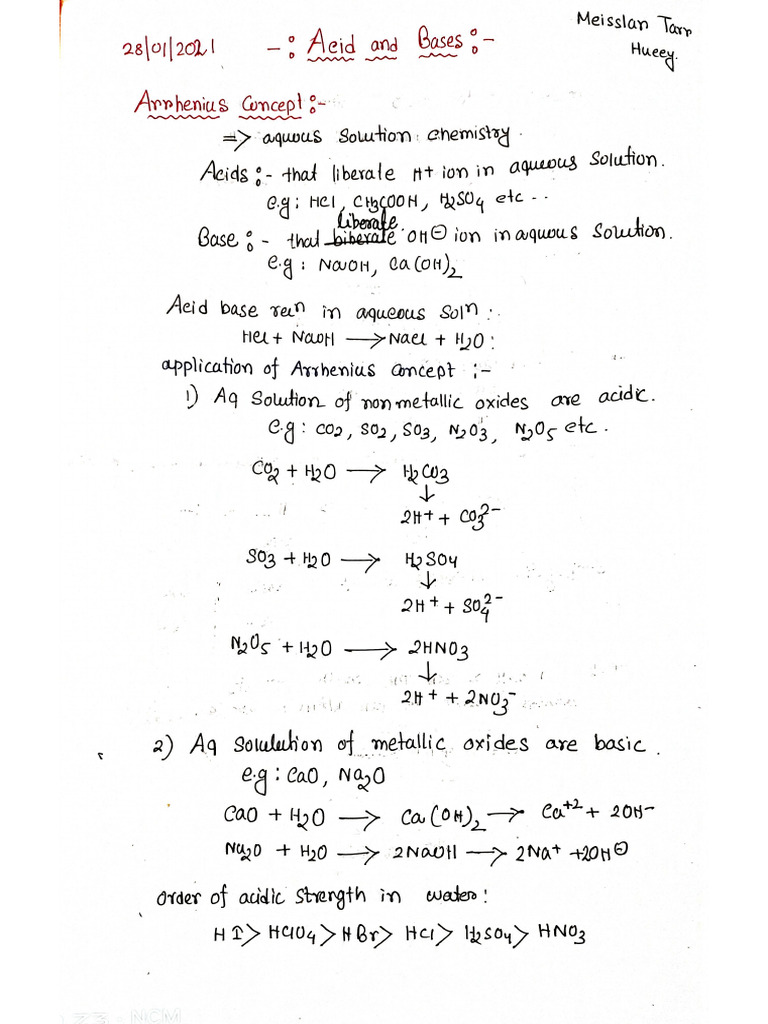 Meisslan Tarr
Hueey.
28/01/2021 -: Acid and Bases :-
Arrhenius Concept :-
=> aquous solution chemistry.
Acids :- that liberate H+ ion in aqueous solution.
e.g : HCl, CH3COOH, H2SO4 etc ..
liberate
Base :- that biberate OH⊖ ion in aquous solution.
e.g : NaOH, Ca(OH)2
Acid base rexn in aqueous soln :.
HCl + NaOH ⟶ NaCl + H2O :
application of Arrhenius Concept :-
1) Aq solution of nonmetallic oxides are acidic.
e.g : CO2, SO2, SO3, N2O3, N2O5 etc.
CO2 + H2O ⟶ H2CO3
↓
2H+ + CO3^2-
SO3 + H2O ⟶ H2SO4
↓
2H+ + SO4^2-
N2O5 + H2O ⟶ 2HNO3
↓
2H+ + 2NO3-
2) Aq solulution of metallic oxides are basic.
e.g : CaO, Na2O
CaO + H2O ⟶ Ca(OH)2 ⟶ Ca+2 + 2OH-
Na2O + H2O ⟶ 2NaOH ⟶ 2Na+ + 2OH⊖
order of acidic strength in water :
HI > HClO4 > HBr > HCl > H2SO4 > HNO3